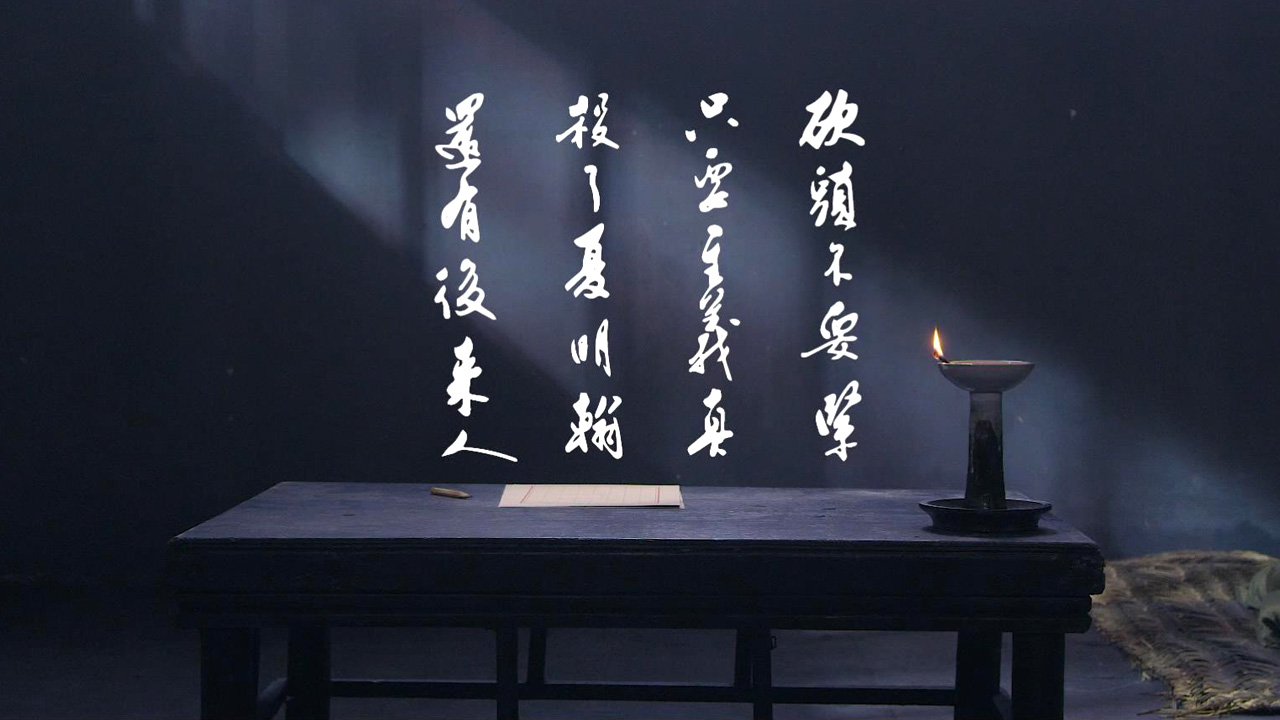 砍頭不要緊
只要主義真
殺了夏明翰
還有後来人